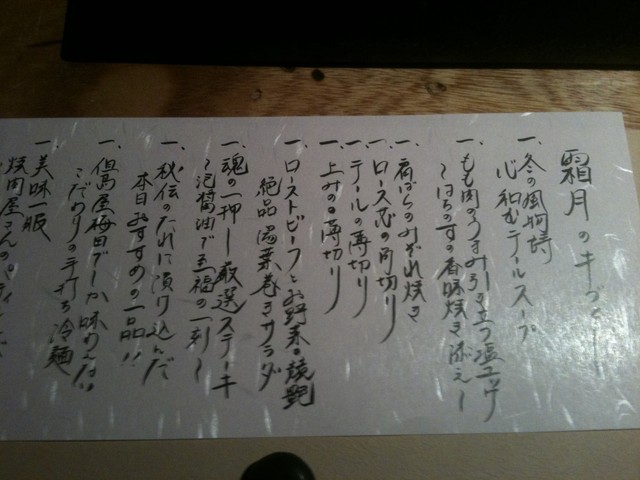 霜月の
一、冬の風物詩
心和むテールスープ
一、もも肉のうすみ引き立つ塩ユッケ
〜はちのすの香味焼き添え〜
一、肩ばらのみぞれ焼き
一、ロース芯の角切り
一、テールの薄切り
一、上みのの薄切り
一、ローストビーフとお野菜の競艶
絶品温菜巻きサラダ
一、魂の一押し厳選ステーキ
〜泡醤油で至福の一刻〜
一、秘伝のたれに漬け込んだ
本日おすすめの一品!!
一、但馬屋梅田でしか味わえない!!
こだわりの手打ち冷麺
一、美味一服
焼肉屋さんの